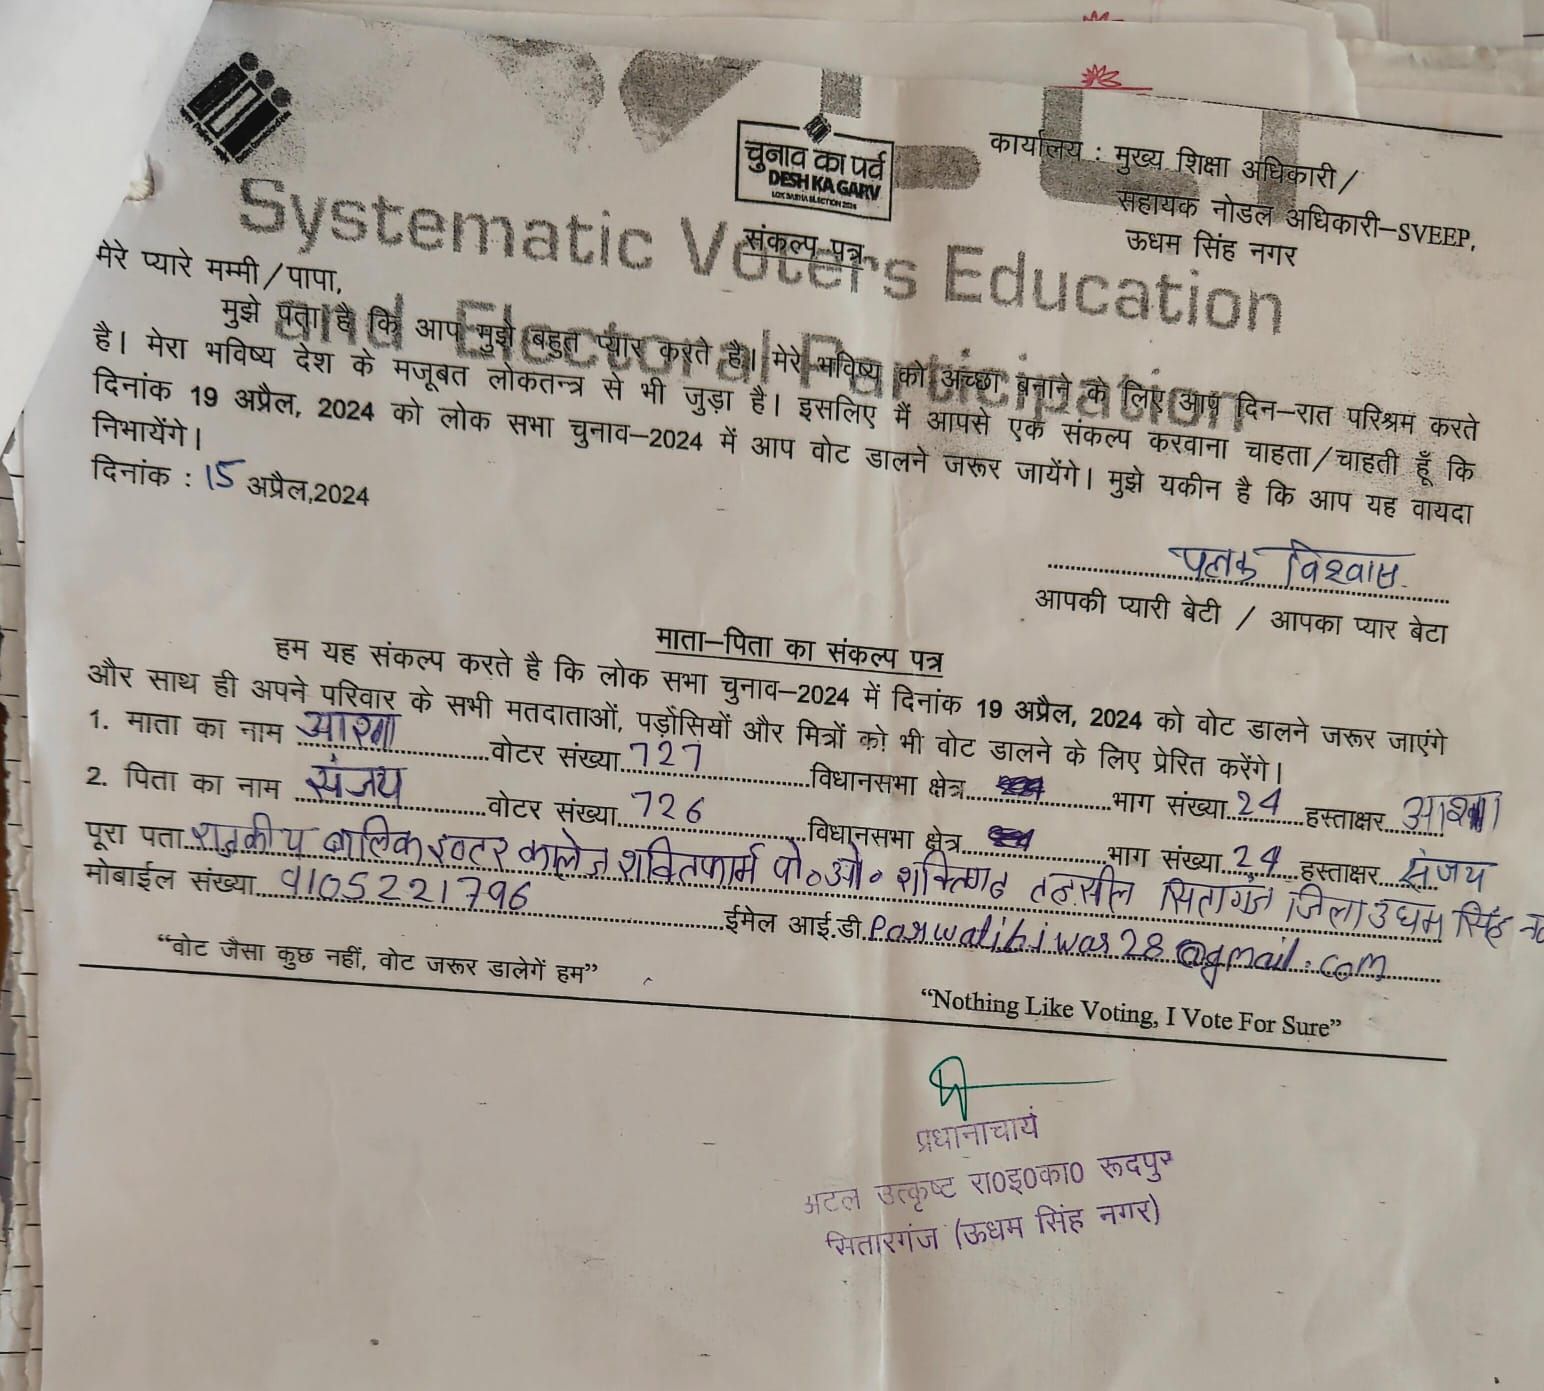 चुनाव का पर्व
DESH KA GARV
LOK SABHA ELECTION 2024
कार्यालय : मुख्य शिक्षा अधिकारी/
सहायक नोडल अधिकारी–SVEEP,
ऊधम सिंह नगर
Systematic Voters Education
and Electoral Participation
संकल्प पत्र
मेरे प्यारे मम्मी/पापा,
मुझे पता है कि आप मुझे बहुत प्यार करते है। मेरे भविष्य को अच्छा बनाने के लिए आप दिन–रात परिश्रम करते
है। मेरा भविष्य देश के मजूबत लोकतन्त्र से भी जुड़ा है। इसलिए मैं आपसे एक संकल्प करवाना चाहता/चाहती हूँ कि
दिनांक 19 अप्रैल, 2024 को लोक सभा चुनाव–2024 में आप वोट डालने जरूर जायेंगे। मुझे यकीन है कि आप यह वायदा
निभायेंगे।
दिनांक : 15 अप्रैल,2024
पलक विश्वास
आपकी प्यारी बेटी / आपका प्यार बेटा
माता–पिता का संकल्प पत्र
हम यह संकल्प करते है कि लोक सभा चुनाव–2024 में दिनांक 19 अप्रैल, 2024 को वोट डालने जरूर जाएंगे
और साथ ही अपने परिवार के सभी मतदाताओं, पड़ोसियों और मित्रों को भी वोट डालने के लिए प्रेरित करेंगे।
1. माता का नाम वोटर संख्या 727 विधानसभा क्षेत्र भाग संख्या 24 हस्ताक्षर
2. पिता का नाम संजय वोटर संख्या 726 विधानसभा क्षेत्र भाग संख्या 24 हस्ताक्षर संजय
पूरा पता बालिक इण्टर कालेज शक्तिफार्म पो०ओ० तहसील जिला उधम सिंह
मोबाईल संख्या 9105221796 ईमेल आई.डी.
“वोट जैसा कुछ नहीं, वोट जरूर डालेगें हम”
“Nothing Like Voting, I Vote For Sure”
प्रधानाचार्य
अटल उत्कृष्ट रा0इ0का0 रूदपुर
सितारगंज (ऊधम सिंह नगर)